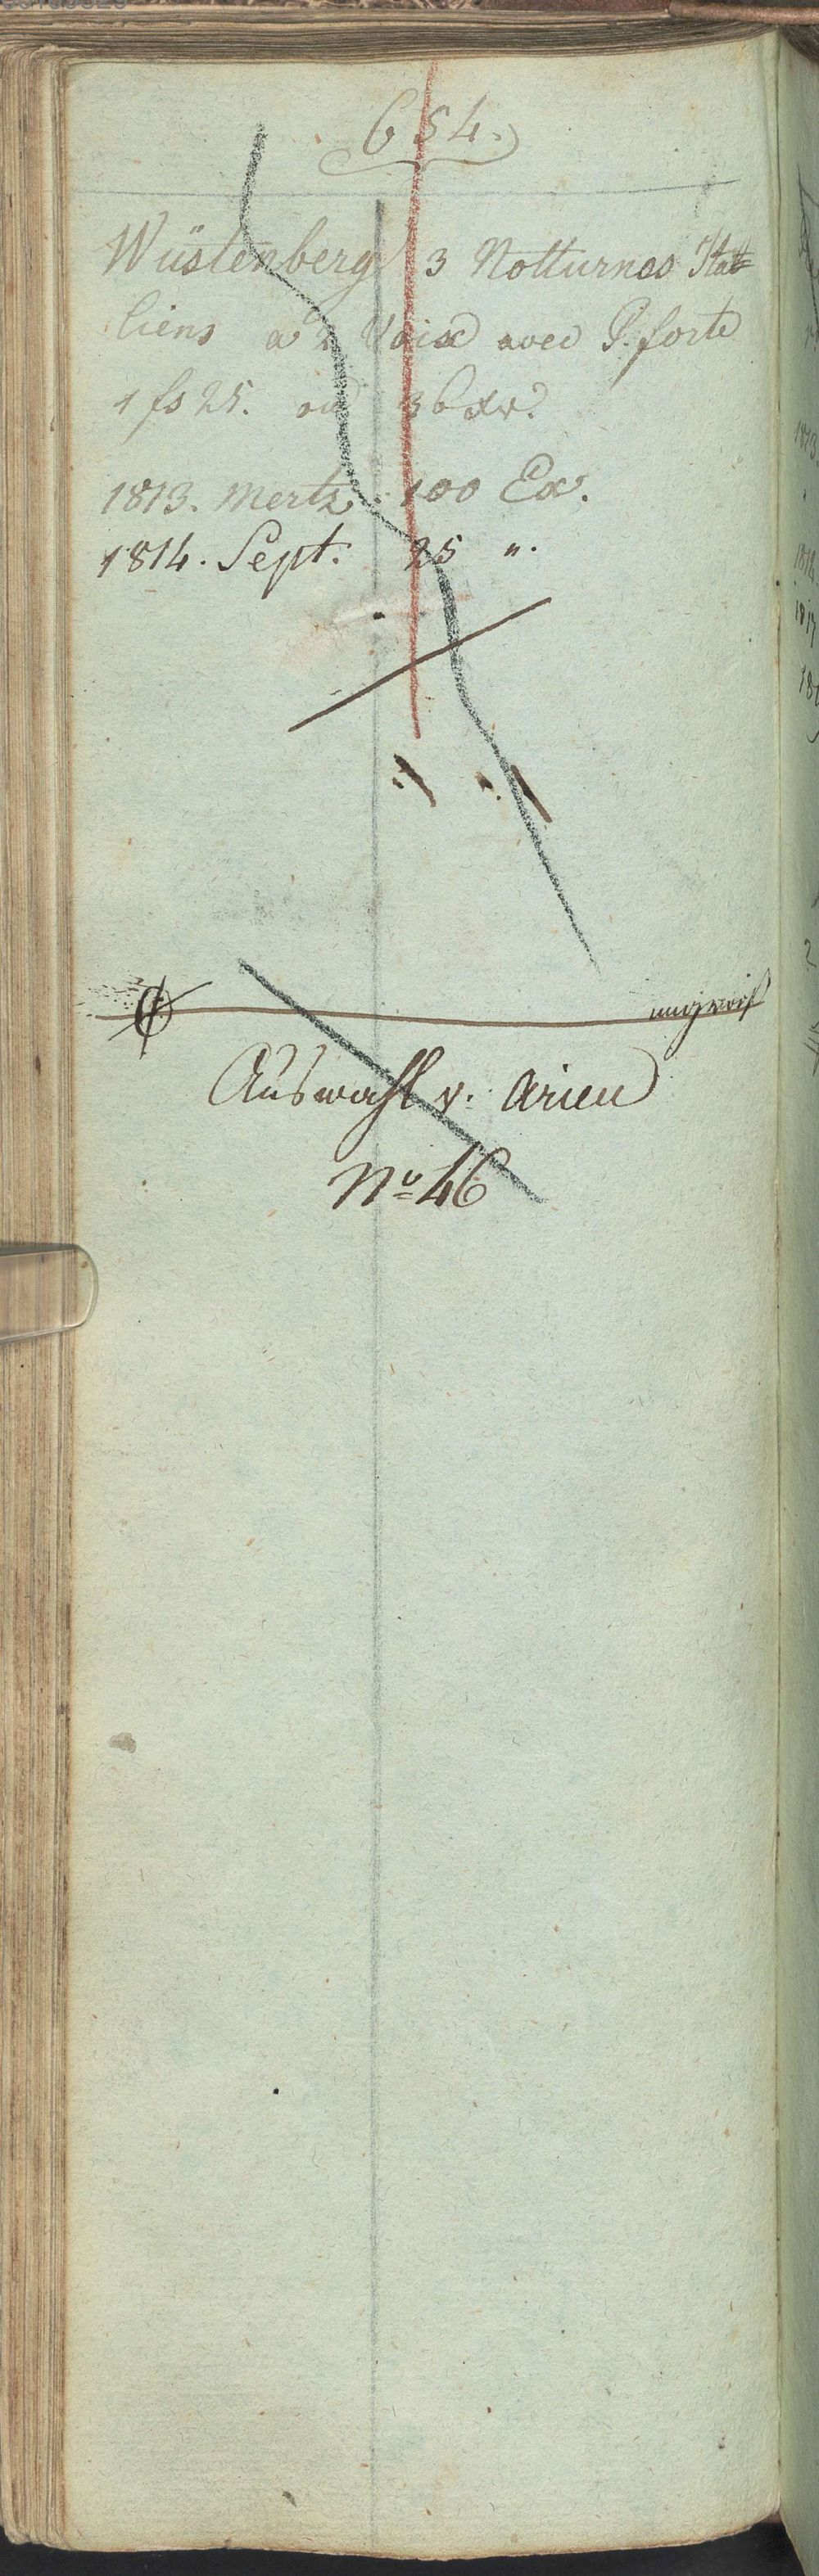 654.
Wüstenberg 3 Notturnos Ita=
liens a 2 Voix avec P. forte
1 fs 25. od 36 xr.
1813. Mertz. 100 Ex.
1814. Sept. 25 ".
ungewiß
Auswahl v. Arien
No 46